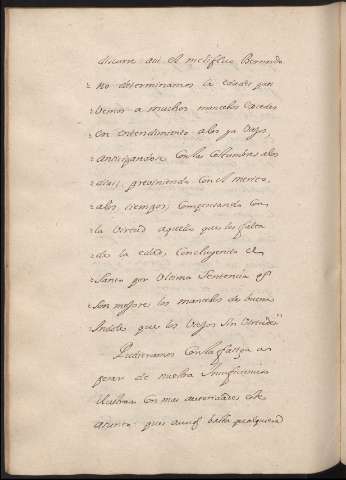 discurre asi el melifluo Bernardo
no determinamos la edad, pues
vemos a muchos mancebos exceder
en entendimiento a los ya viejos,
anticipandose con las costumbres a los
dias, previniendo con el merito,
a los tiempos, compensando con
la virtud aquello que les falta
de la edad, concluyendo el
Santo por ultima Sentencia
son mejores los mancebos de buena
Indole que los viejos sin virtudes"
Pudieramos con la
de nuestra Insuficiencia
Ilustrar con mas autoridades este
asunto pues aunq basta qualquiera